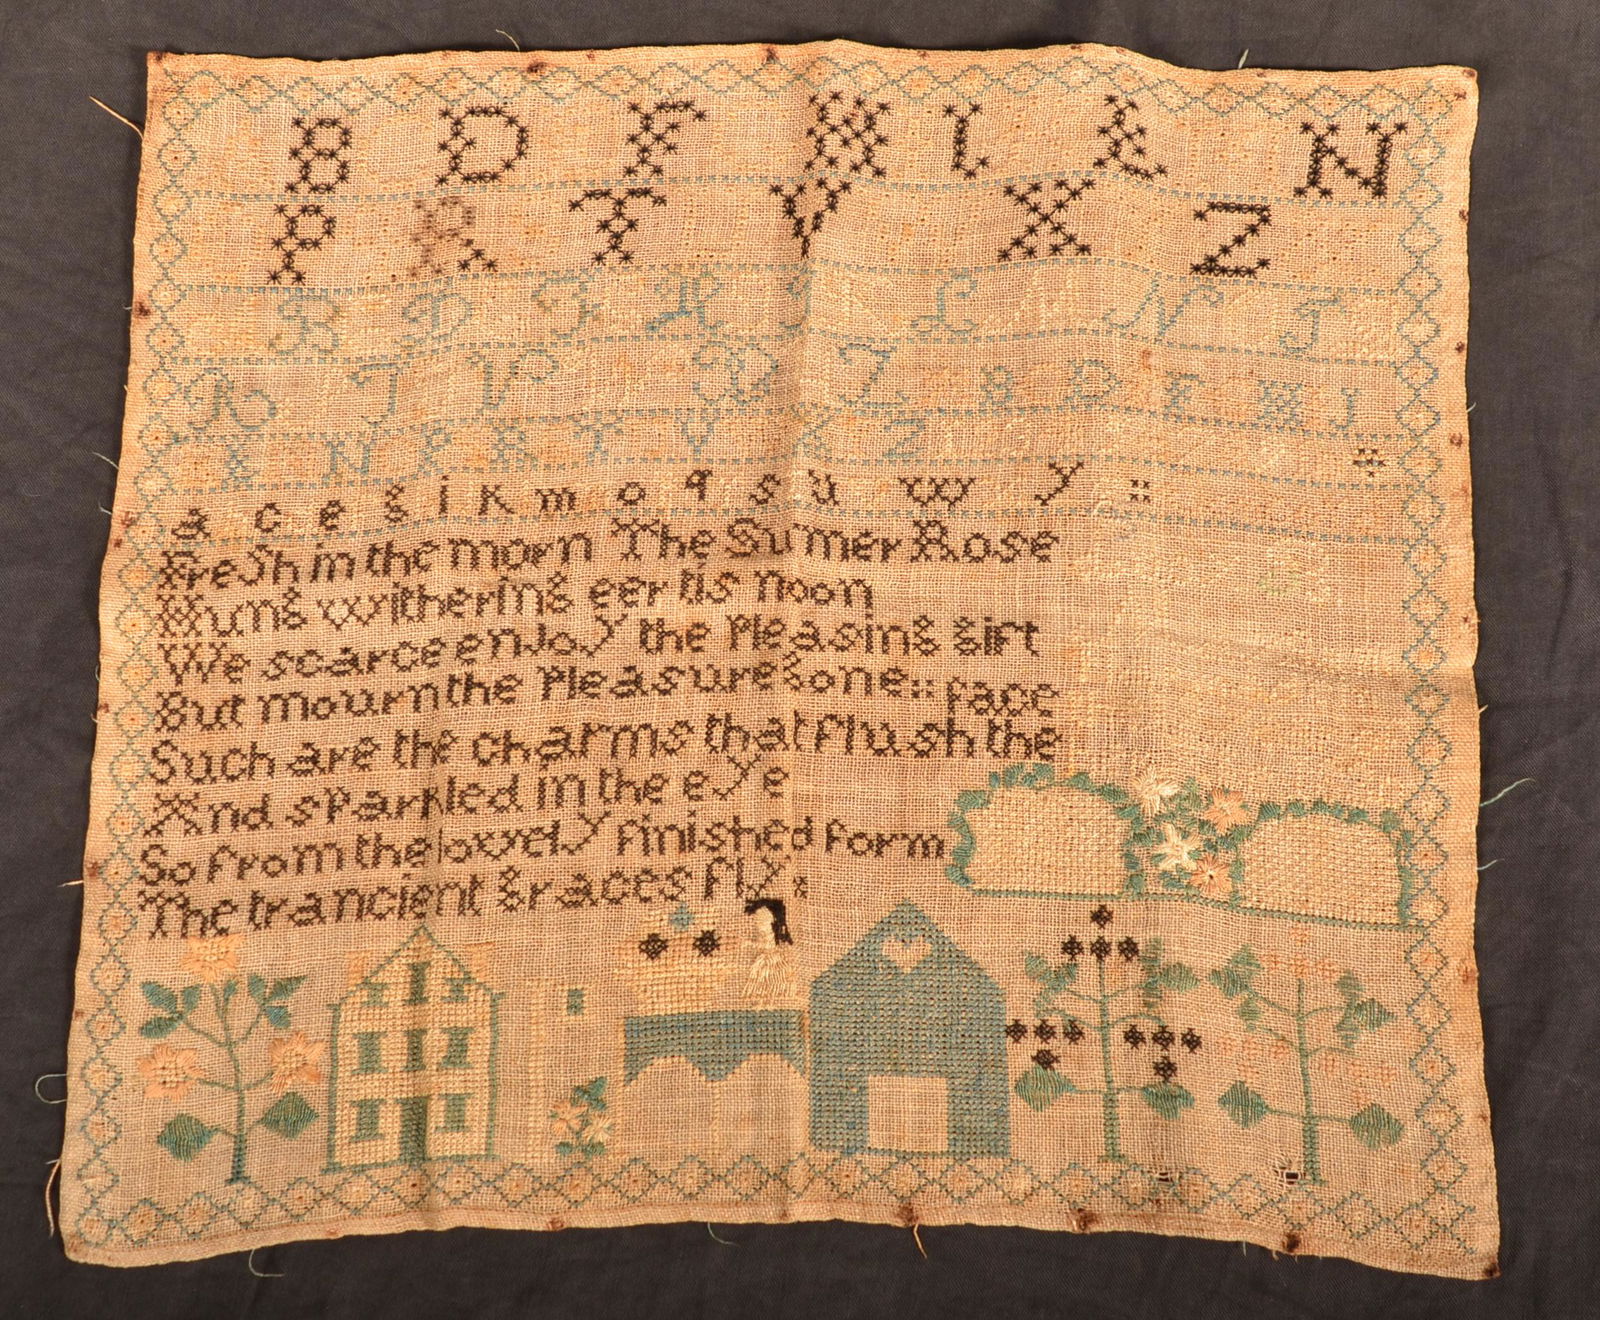 B D F H I L N
P R T V X Z
B D F H I L N P
R T V X Z B D F H I
L N P R T V X Z
a c e g i k m o q s u w y ::
Fresh in the morn The Sumer Rose
Hung withering eer tis noon
We scarce enjoy the Pleasing gift
But mourn the Pleasure gone :: face
Such are the charms that flush the
And sparkled in the eye
So from the lovely finished form
The trancient graces fly :